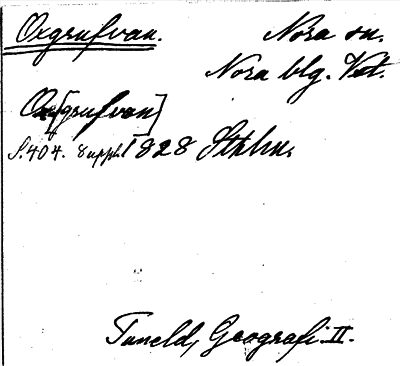 Oxgrufvan. Nora sn.
Nora blg. Vstl.
Ox[grufvan]
S. 404. Suppl. 1828 Sthlm.
Tuneld, Geografi. II.